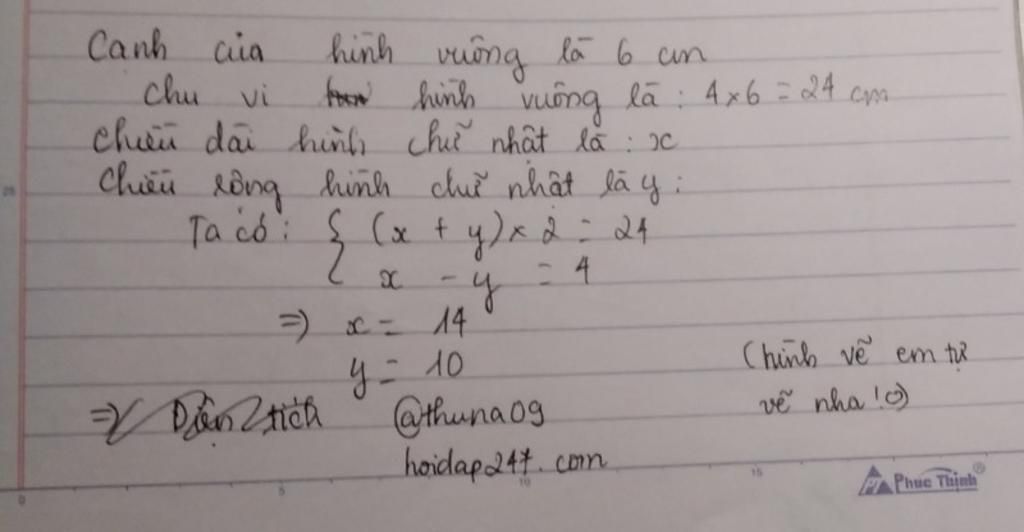 Cạnh của hình vuông là 6 cm
Chu vi hình vuông là : 4 × 6 = 24 cm
Chiều dài hình chữ nhật là : x
Chiều rộng hình chữ nhật là y :
Ta có : { (x + y) × 2 = 24
x - y = 4
=> x = 14
y = 10
(hình vẽ em tự
vẽ nha !☺)
=> Diện tích @thuna09
hoidap247.com
20
0 5 10 15
Phuc Thinh®